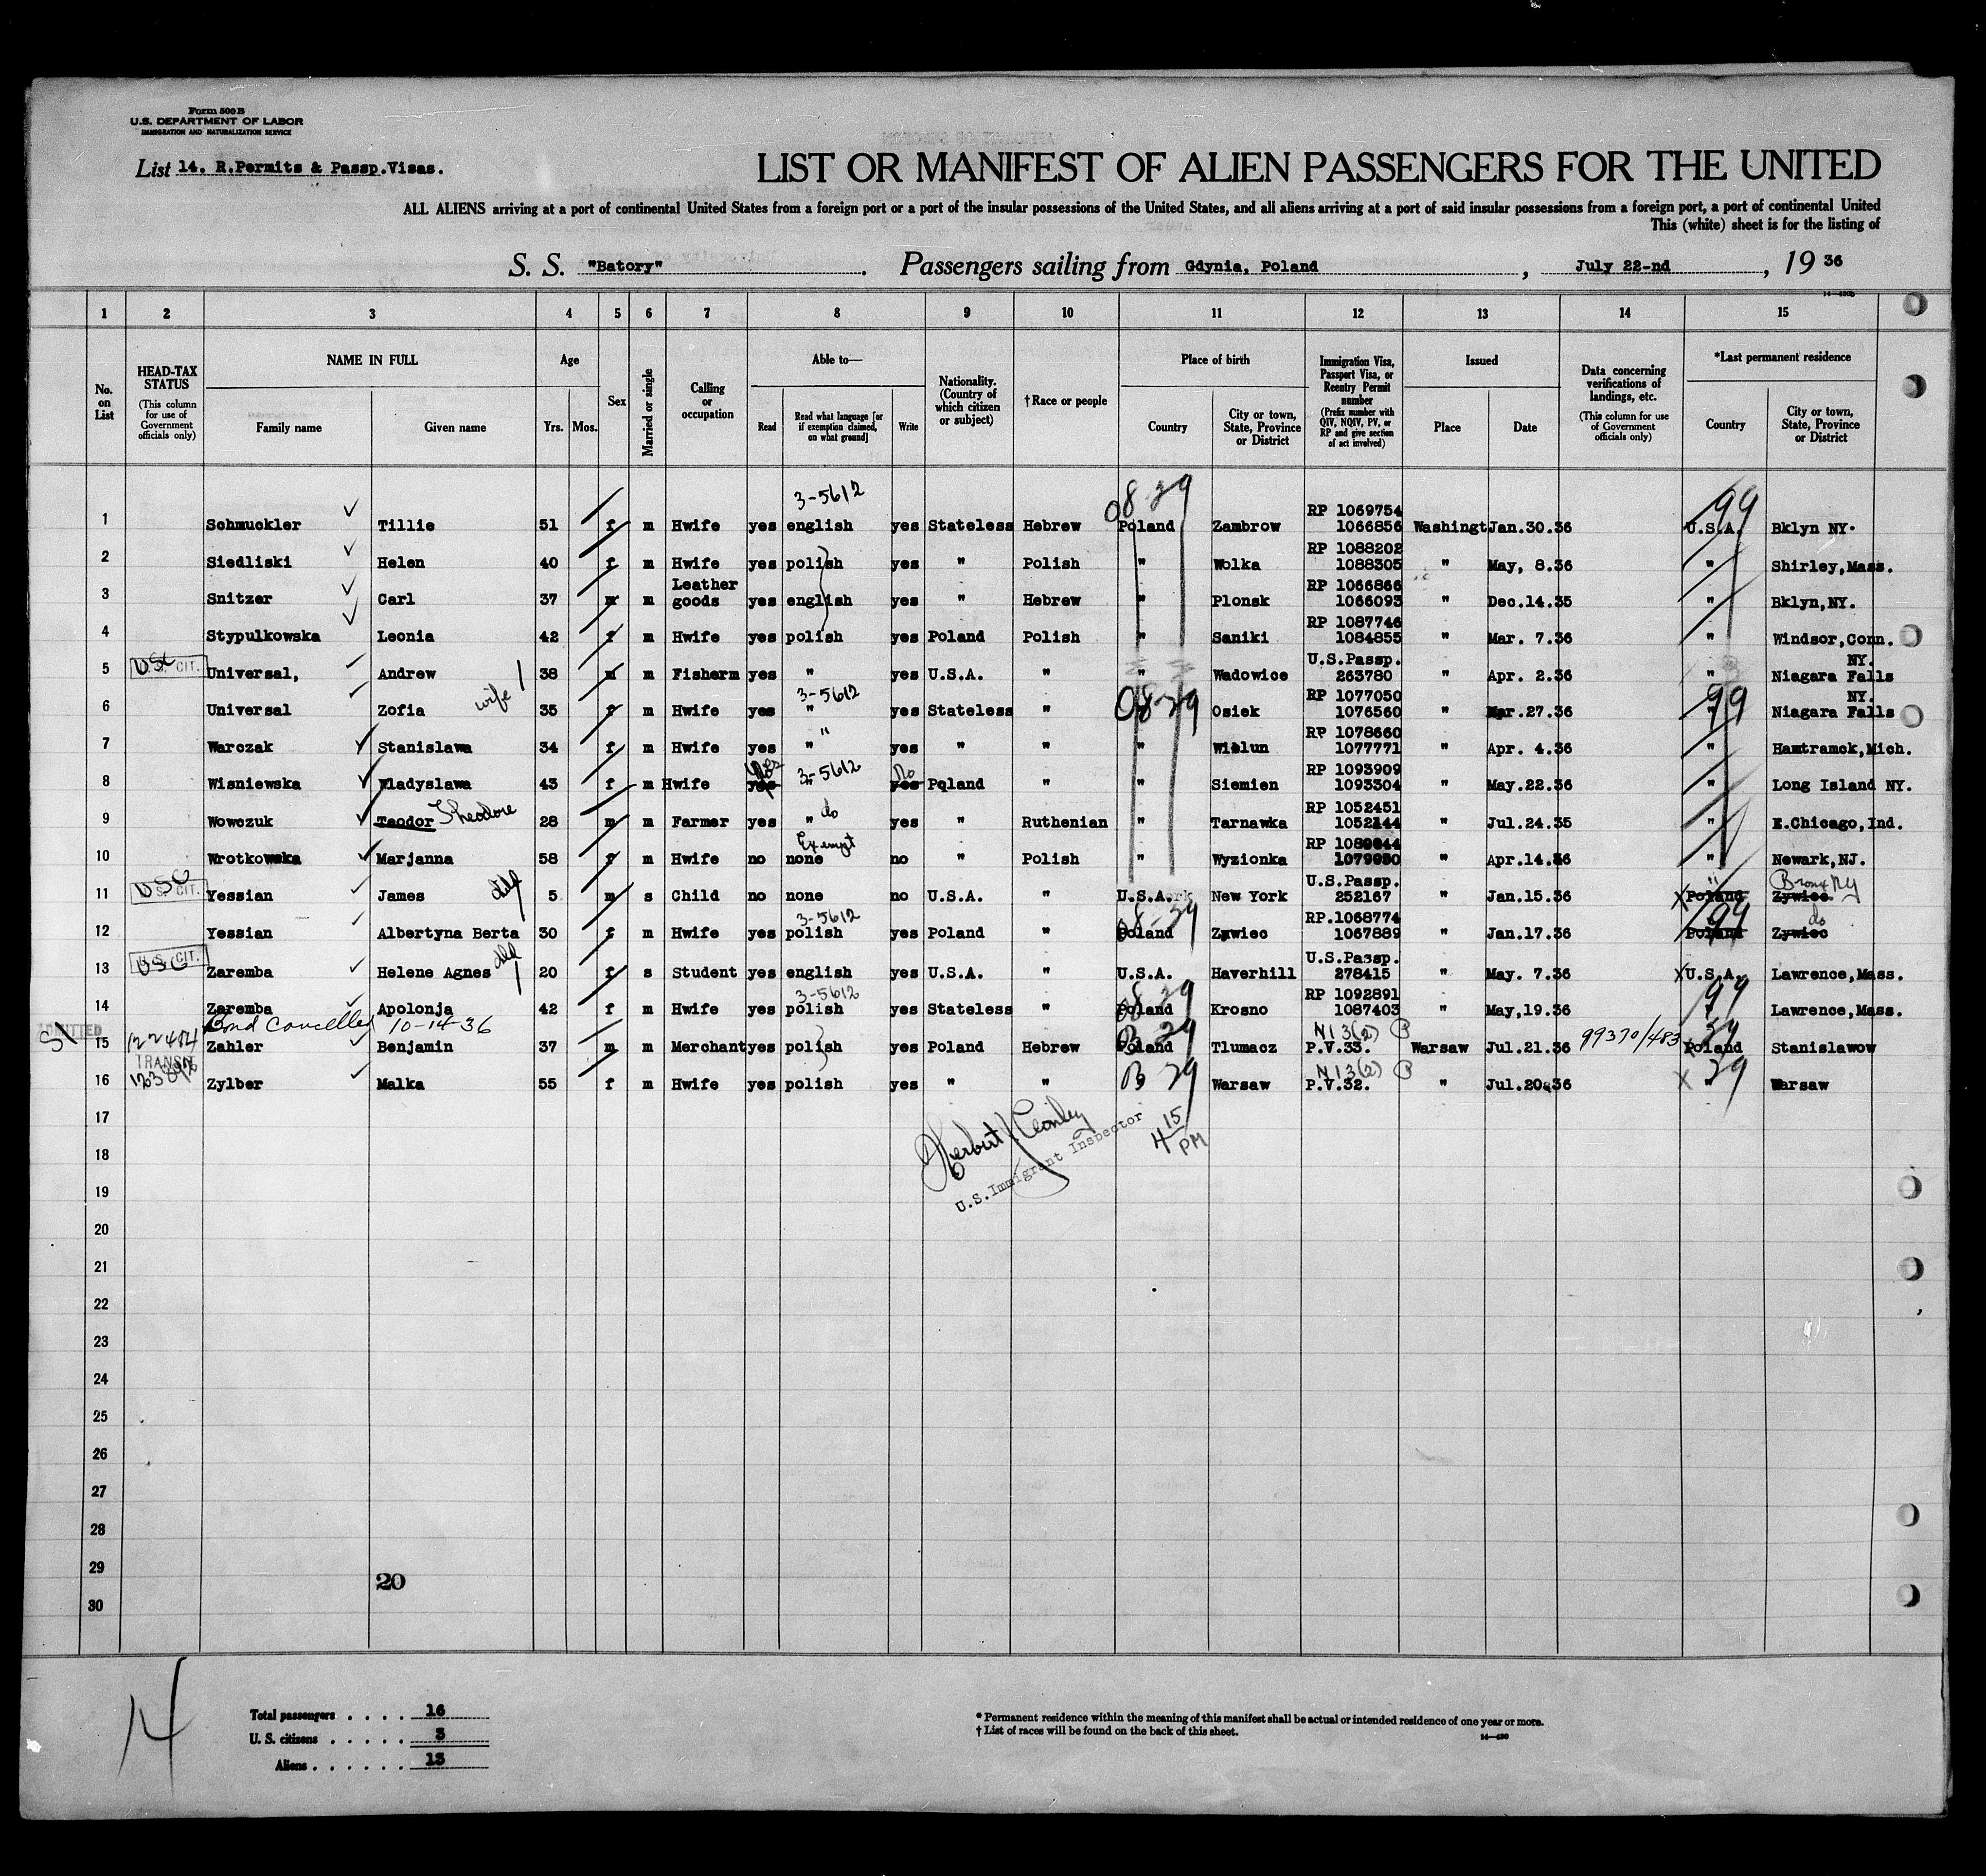 Form 500 B
U.S. DEPARTMENT OF LABOR
IMMIGRATION AND NATURALIZATION SERVICE
List 14. R.Permits & Passp.Visas.
LIST OR MANIFEST OF ALIEN PASSENGERS FOR THE UNITED
ALL ALIENS arriving at a port of continental United States from a foreign port or a port of the insular possessions of the United States, and all aliens arriving at a port of said insular possessions from a foreign port, a port of continental United
This (white) sheet is for the listing of
S. S. "Batory" . Passengers sailing from Gdynia, Poland , July 22-nd , 19 36
1 2 3 4 5 6 7 8 9 10 11 12 13 14 15
No. on List
HEAD-TAX STATUS (This column for use of Government officials only)
NAME IN FULL
Family name Given name
Age
Yrs. Mos.
Sex
Married or single
Calling or occupation
Able to—
Read Read what language [or if exemption claimed, on what ground] Write
Nationality. (Country of which citizen or subject)
†Race or people
Place of birth
Country City or town, State, Province or District
Immigration Visa, Passport Visa, or Reentry Permit number (Prefix number with QIV, NQIV, PV, or RP and give section of act involved)
Issued
Place Date
Data concerning verifications of landings, etc. (This column for use of Government officials only)
*Last permanent residence
Country City or town, State, Province or District
3-5612 08-29 RP 1069754 99
1 Schmuckler Tillie 51 f m Hwife yes english yes Stateless Hebrew Poland Zambrow 1066856 Washingt Jan.30.36 U.S.A. Bklyn NY.
RP 1088202
2 Siedliski Helen 40 f m Hwife yes polish yes " Polish " Wolka 1088305 " May, 8.36 " Shirley,Mass.
Leather RP 1066866
3 Snitzer Carl 37 m m goods yes english yes " Hebrew " Plonsk 1066093 " Dec.14.35 " Bklyn,NY.
RP 1087746
4 Stypulkowska Leonia 42 f m Hwife yes polish yes Poland Polish " Saniki 1084855 " Mar. 7.36 " Windsor,Conn.
USC U.S. CIT. U.S.Passp. NY.
5 Universal, Andrew 38 m m Fisherm yes " yes U.S.A. " " Wadowice 263780 " Apr. 2.36 " Niagara Falls
wife 3-5612 08-29 RP 1077050 99 NY.
6 Universal Zofia 35 f m Hwife yes " yes Stateless " " Osiek 1076560 " Mar.27.36 " Niagara Falls
" RP 1078660
7 Warczak Stanislawa 34 f m Hwife yes " yes " " " Wielun 1077771 " Apr. 4.36 " Hamtramck,Mich.
3-5612 No RP 1093909
8 Wisniewska Wladyslawa 43 f m Hwife yes " yes Poland " " Siemien 1093304 " May.22.36 " Long Island NY.
Theodore do RP 1052451
9 Wowczuk Teodor 28 m m Farmer yes " yes " Ruthenian " Tarnawka 1052144 " Jul.24.35 " E.Chicago,Ind.
Exempt RP 1080044
10 Wrotkowska Marjanna 58 f m Hwife no none no " Polish " Wyzionka 1079950 " Apr.14.36 " Newark,NJ.
USC U.S. CIT. U.S.Passp. " Bronx NY
11 Yessian James 5 m s Child no none no U.S.A. " U.S.A. New York 252167 " Jan.15.36 X Poland Zywiec
3-5612 08-29 RP.1068774 99 do
12 Yessian Albertyna Berta 30 f m Hwife yes polish yes Poland " Poland Zywiec 1067889 " Jan.17.36 Poland Zywiec
USC U.S. CIT. U.S.Passp.
13 Zaremba Helene Agnes 20 f s Student yes english yes U.S.A. " U.S.A. Haverhill 278415 " May. 7.36 X U.S.A. Lawrence,Mass.
3-5612 08-29 RP 1092891 99
14 Zaremba Apolonja 42 f m Hwife yes polish yes Stateless " Poland Krosno 1087403 " May,19.36 " Lawrence,Mass.
ADMITTED Bond Cancelled 10-14-36 B 29 N 13(2) B 29
15 122484 Zahler Benjamin 37 m m Merchant yes polish yes Poland Hebrew Poland Tlumacz P.V.33. Warsaw Jul.21.36 99370/483 Poland Stanislawow
TRANSIT B 29 N 13(2) B 29
16 Zylber Malka 55 f m Hwife yes polish yes " " Warsaw P.V.32. " Jul.20.36 X " Warsaw
17
U.S.Immigrant Inspector
4 15 PM
18
19
20
21
22
23
24
25
26
27
28
29
20
30
14
Total passengers . . . . 16
U. S. citizens . . . . . 3
Aliens . . . . . . 13
* Permanent residence within the meaning of this manifest shall be actual or intended residence of one year or more.
† List of races will be found on the back of this sheet.
14—430